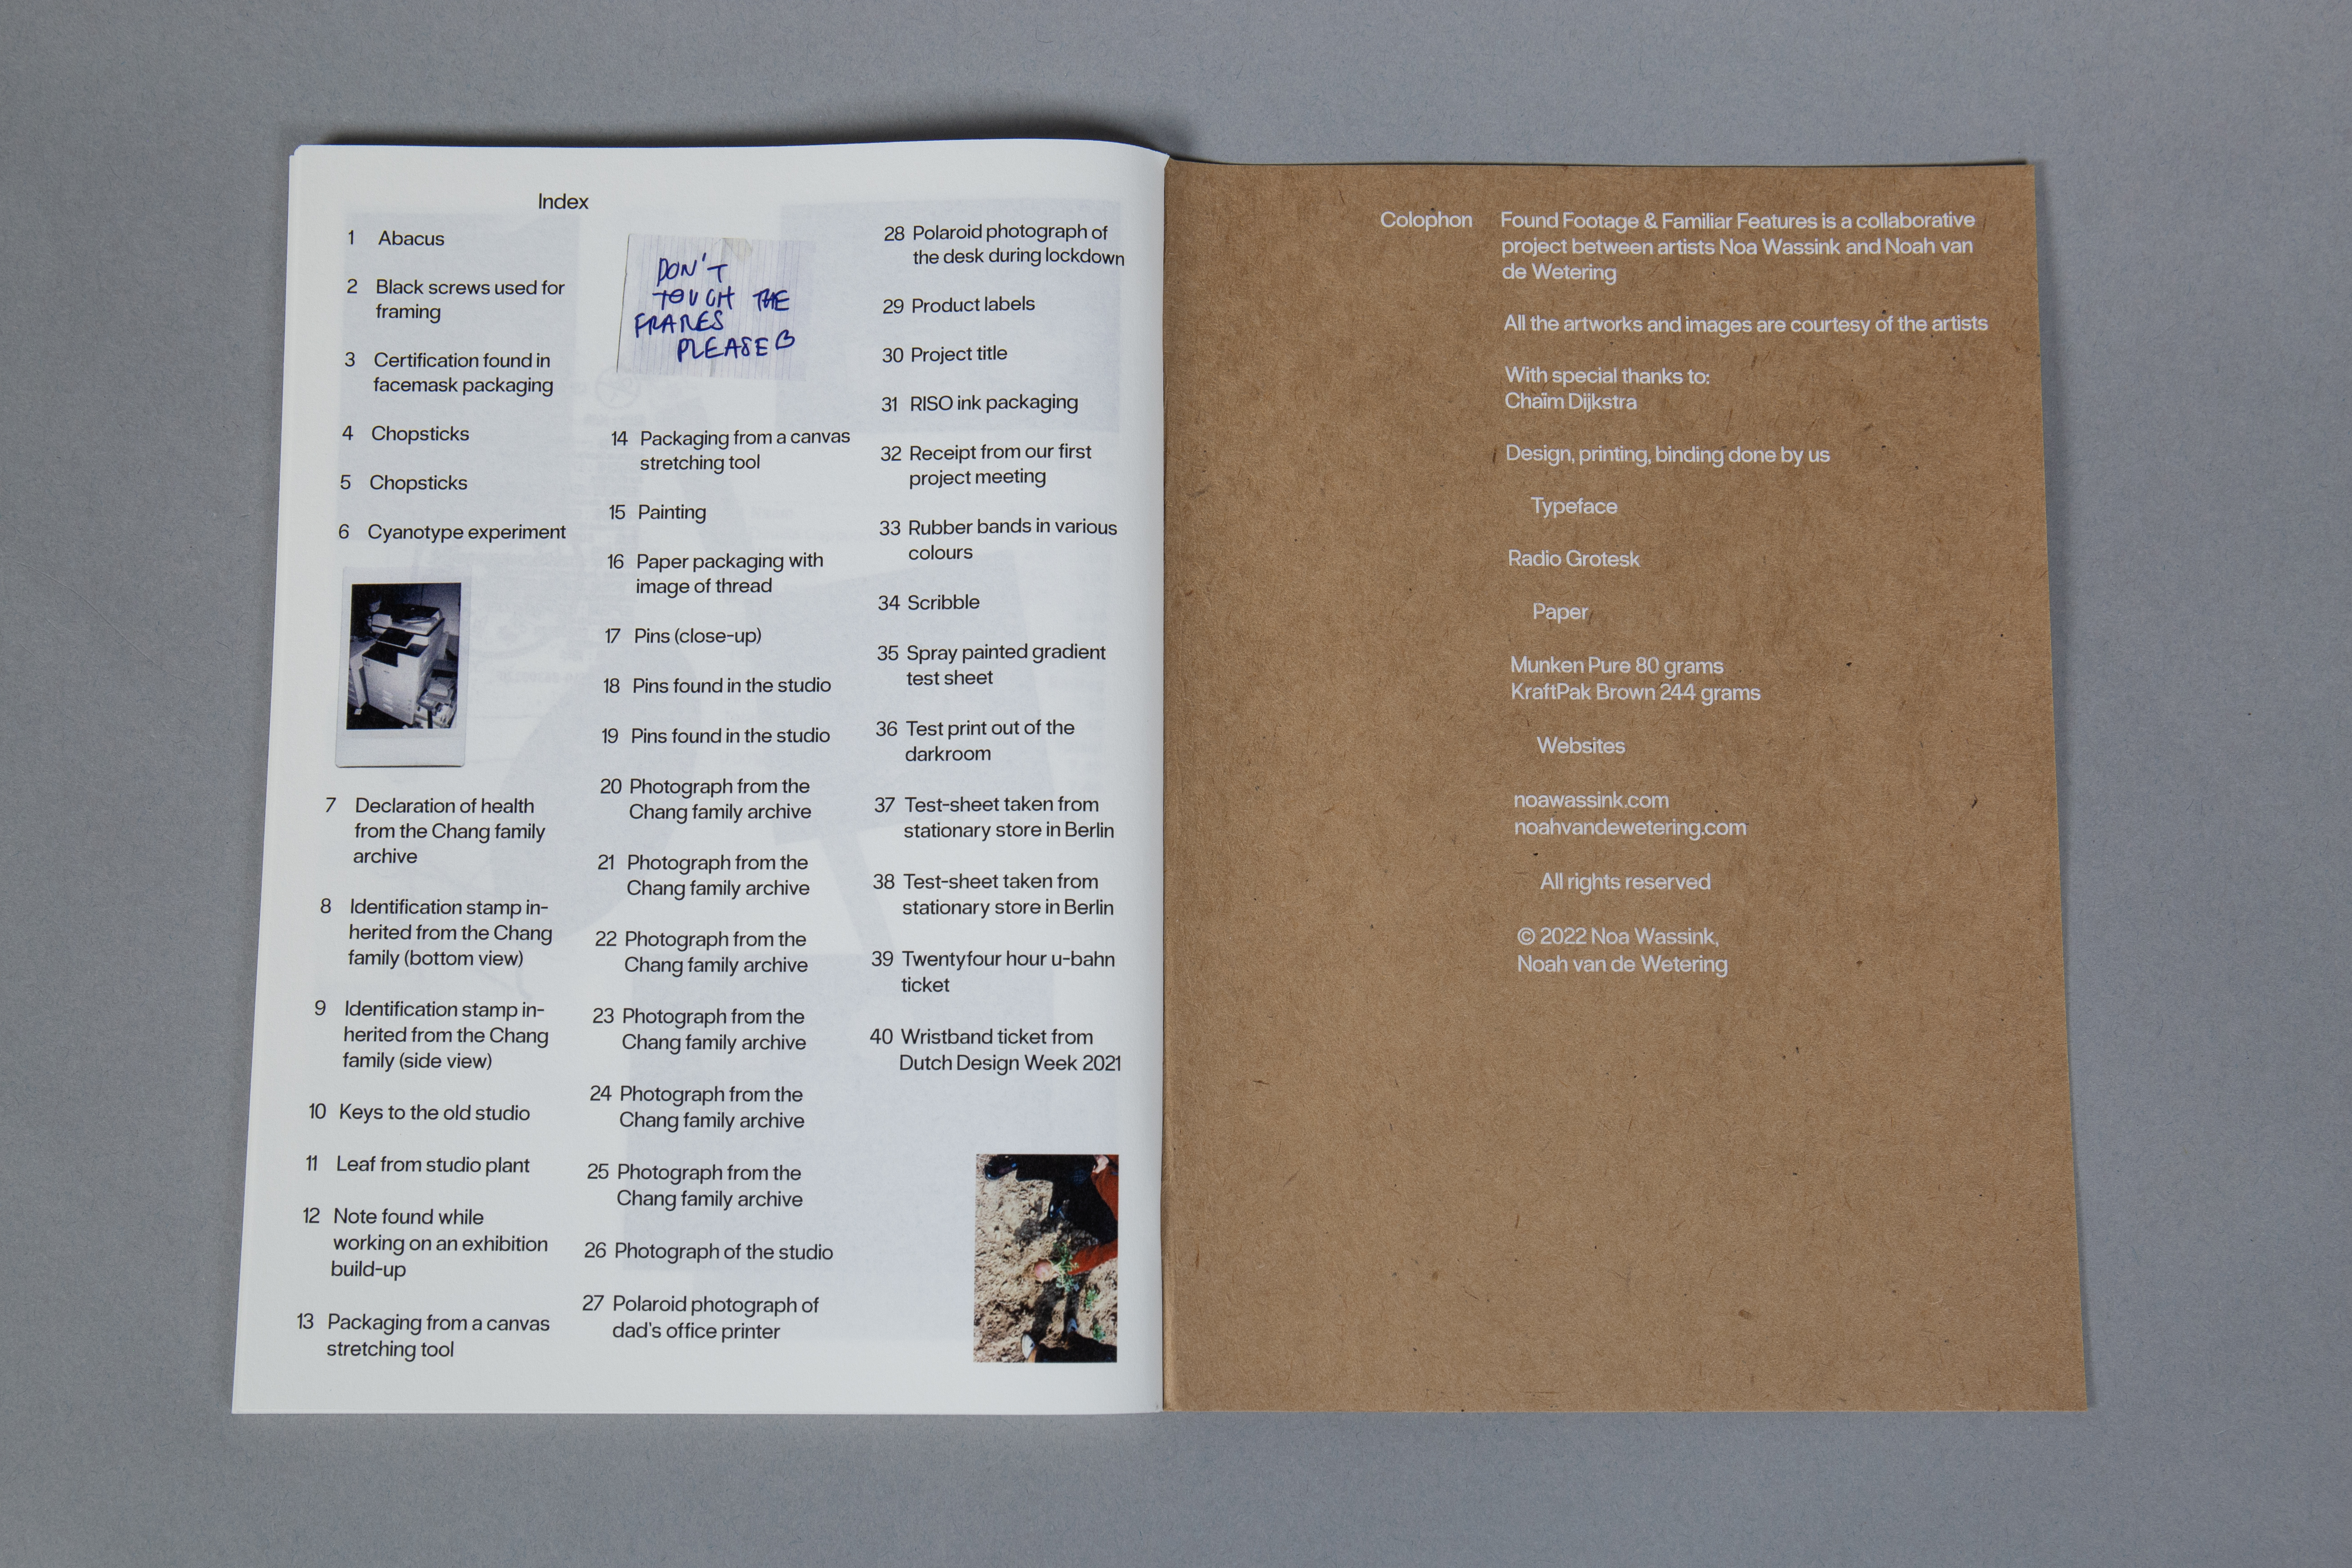 Index
1 Abacus
2 Black screws used for
framing
3 Certification found in
facemask packaging
4 Chopsticks
5 Chopsticks
6 Cyanotype experiment
7 Declaration of health
from the Chang family
archive
8 Identification stamp in-
herited from the Chang
family (bottom view)
9 Identification stamp in-
herited from the Chang
family (side view)
10 Keys to the old studio
11 Leaf from studio plant
12 Note found while
working on an exhibition
build-up
13 Packaging from a canvas
stretching tool
DON'T
TOUCH THE
FRAMES
PLEASE
14 Packaging from a canvas
stretching tool
15 Painting
16 Paper packaging with
image of thread
17 Pins (close-up)
18 Pins found in the studio
19 Pins found in the studio
20 Photograph from the
Chang family archive
21 Photograph from the
Chang family archive
22 Photograph from the
Chang family archive
23 Photograph from the
Chang family archive
24 Photograph from the
Chang family archive
25 Photograph from the
Chang family archive
26 Photograph of the studio
27 Polaroid photograph of
dad's office printer
28 Polaroid photograph of
the desk during lockdown
29 Product labels
30 Project title
31 RISO ink packaging
32 Receipt from our first
project meeting
33 Rubber bands in various
colours
34 Scribble
35 Spray painted gradient
test sheet
36 Test print out of the
darkroom
37 Test-sheet taken from
stationary store in Berlin
38 Test-sheet taken from
stationary store in Berlin
39 Twentyfour hour u-bahn
ticket
40 Wristband ticket from
Dutch Design Week 2021
Colophon
Found Footage & Familiar Features is a collaborative
project between artists Noa Wassink and Noah van
de Wetering
All the artworks and images are courtesy of the artists
With special thanks to:
Chaïm Dijkstra
Design, printing, binding done by us
Typeface
Radio Grotesk
Paper
Munken Pure 80 grams
KraftPak Brown 244 grams
Websites
noawassink.com
noahvandewetering.com
All rights reserved
© 2022 Noa Wassink,
Noah van de Wetering